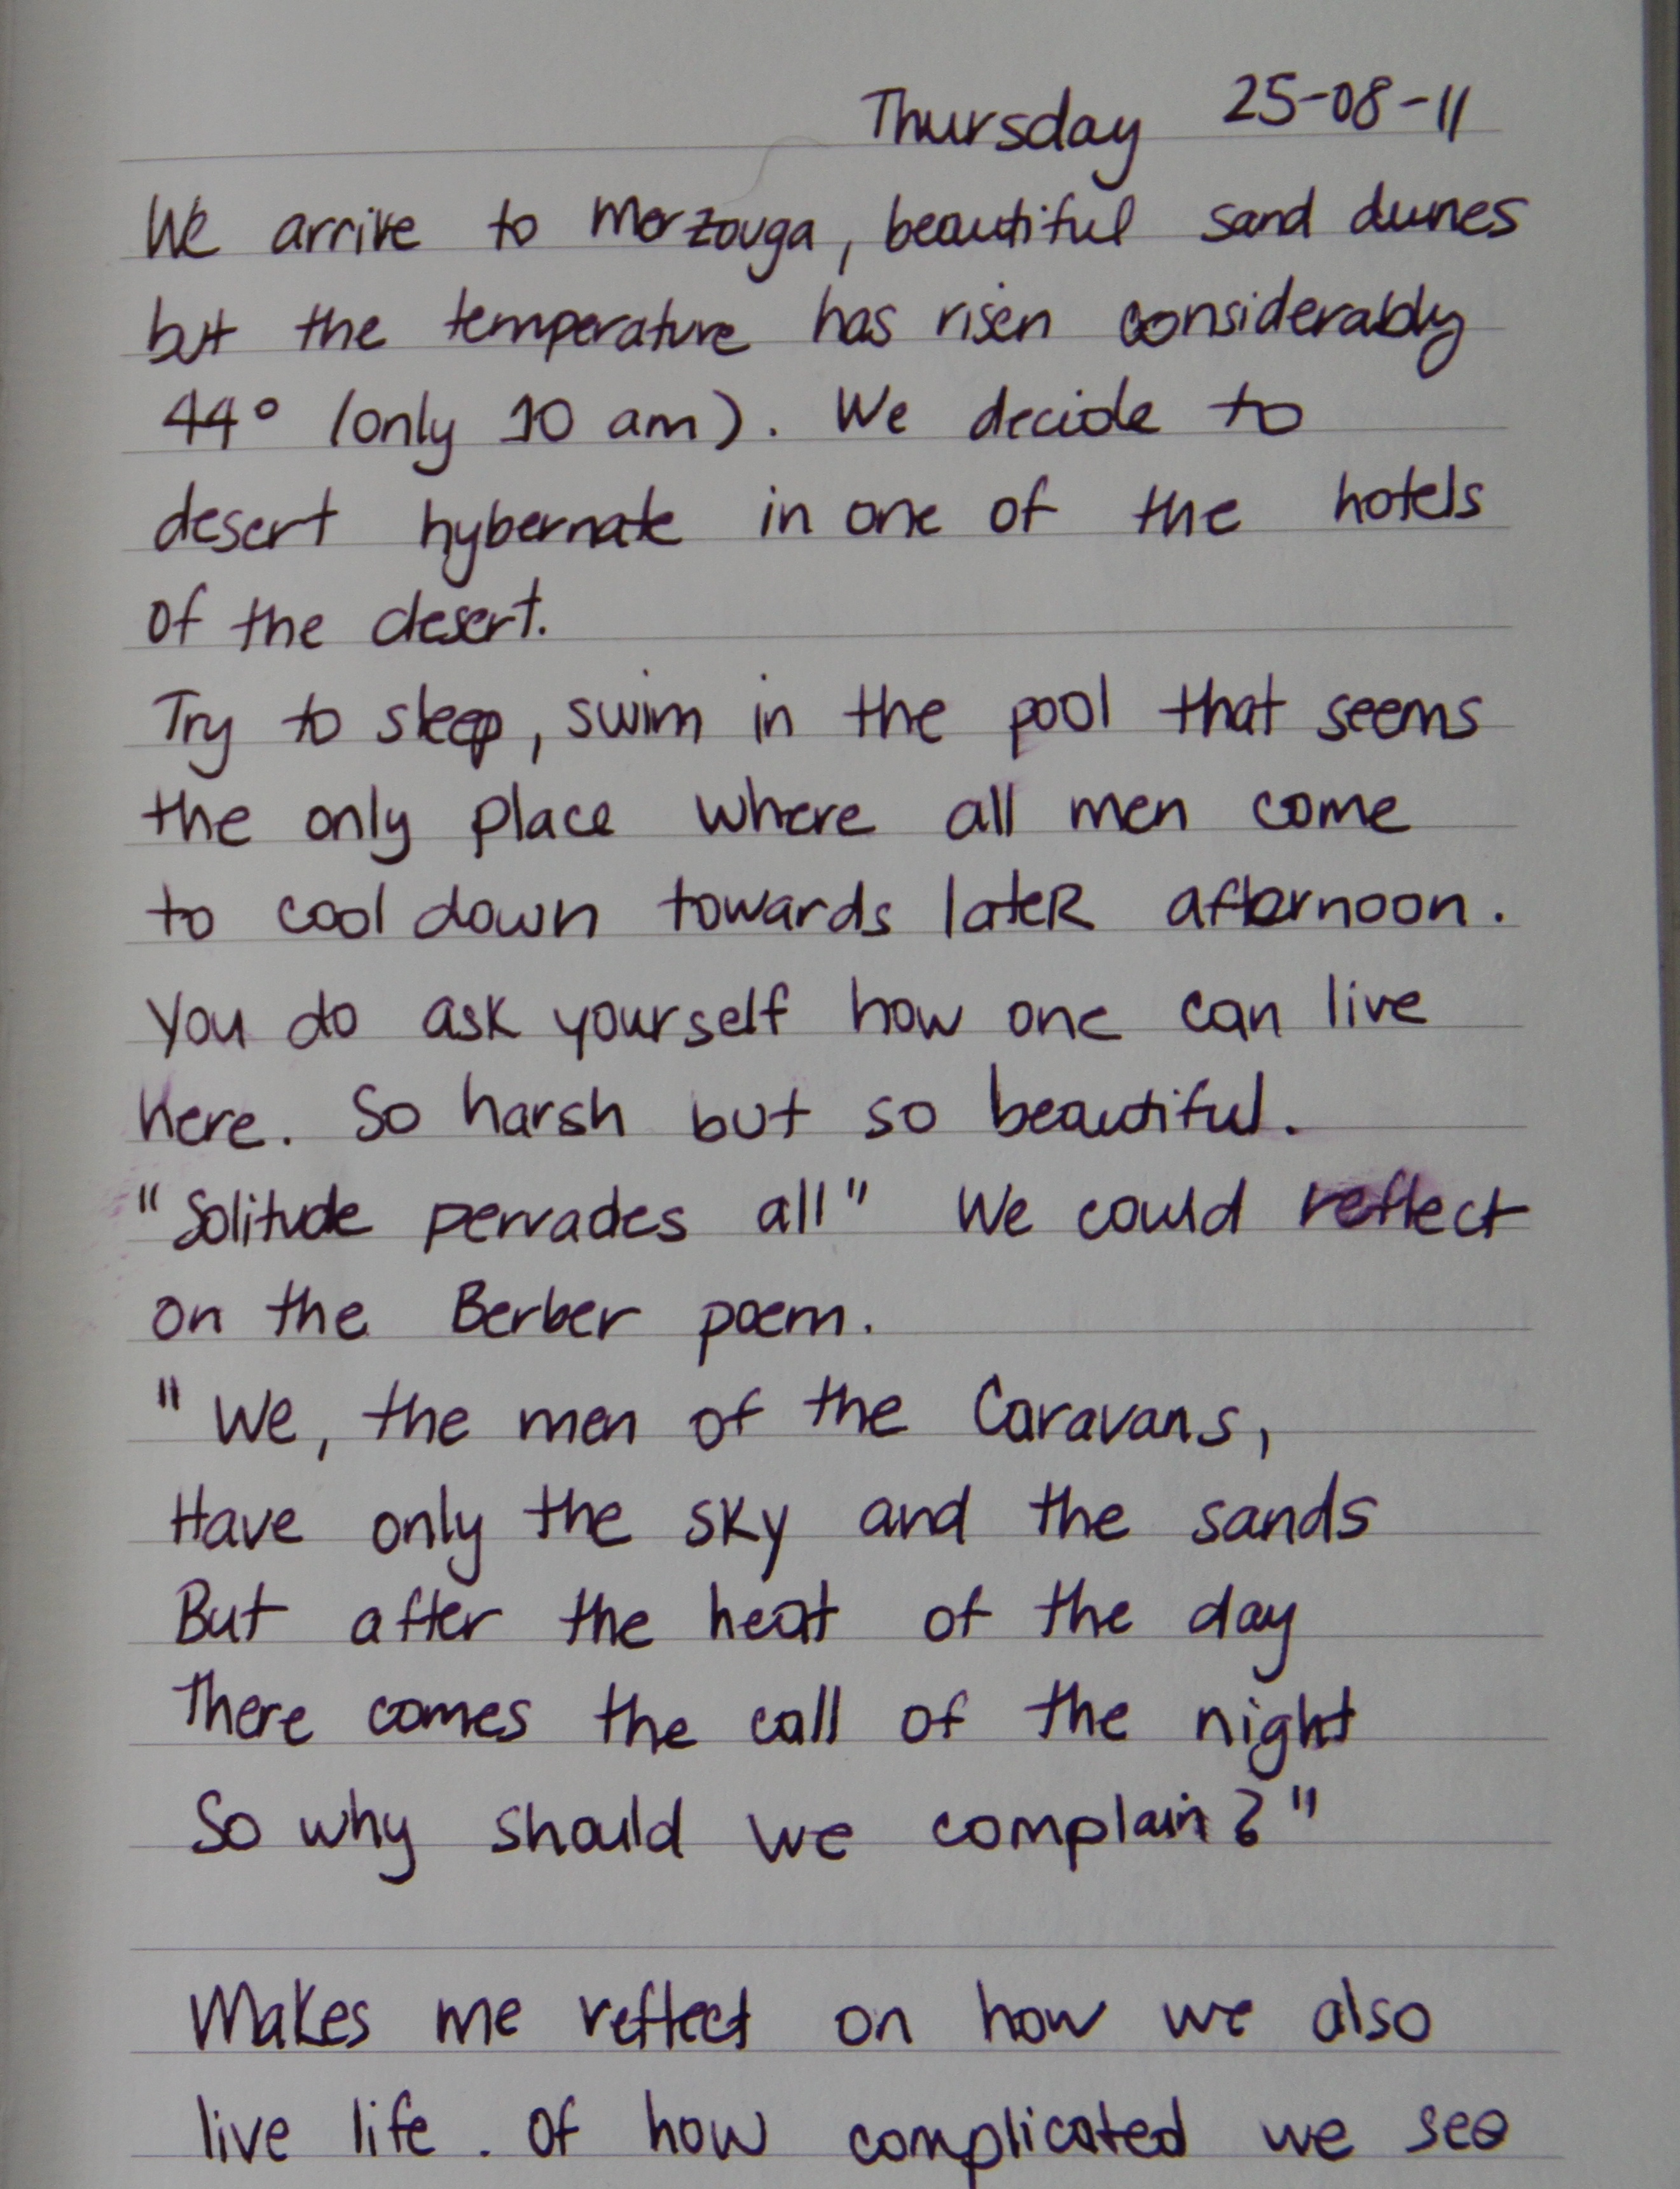 Thursday 25-08-11
We arrive to Merzouga, beautiful sand dunes
but the temperature has risen considerably
44° (only 10 am). We decide to
desert hybernate in one of the hotels
of the desert.
Try to sleep, swim in the pool that seems
the only place where all men come
to cool down towards lateR afternoon.
You do ask yourself how one can live
here. So harsh but so beautiful.
"Solitude pervades all" We could reflect
on the Berber poem.
"We, the men of the Caravans,
Have only the sky and the sands
But after the heat of the day
There comes the call of the night
So why should we complain?"
Makes me reflect on how we also
live life. Of how complicated we see